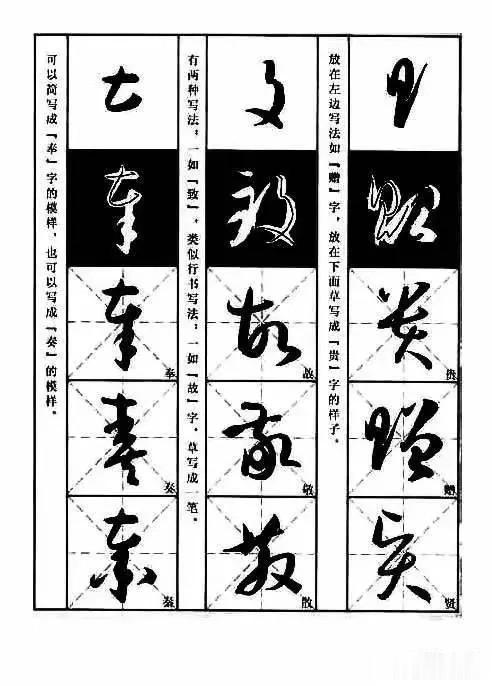 贝
贵
贵
赠
赠
贤
贤
放在左边写法如「赠」字，放在下面草写成「贵」字的样子。
攵
致
故
故
敬
敬
散
散
有两种写法：一如「致」，类似行书写法；一如「故」字，草写成一笔。
奉
奉
奉
奏
奏
秦
秦
可以简写成「奉」字的模样，也可以写成「奏」的模样。